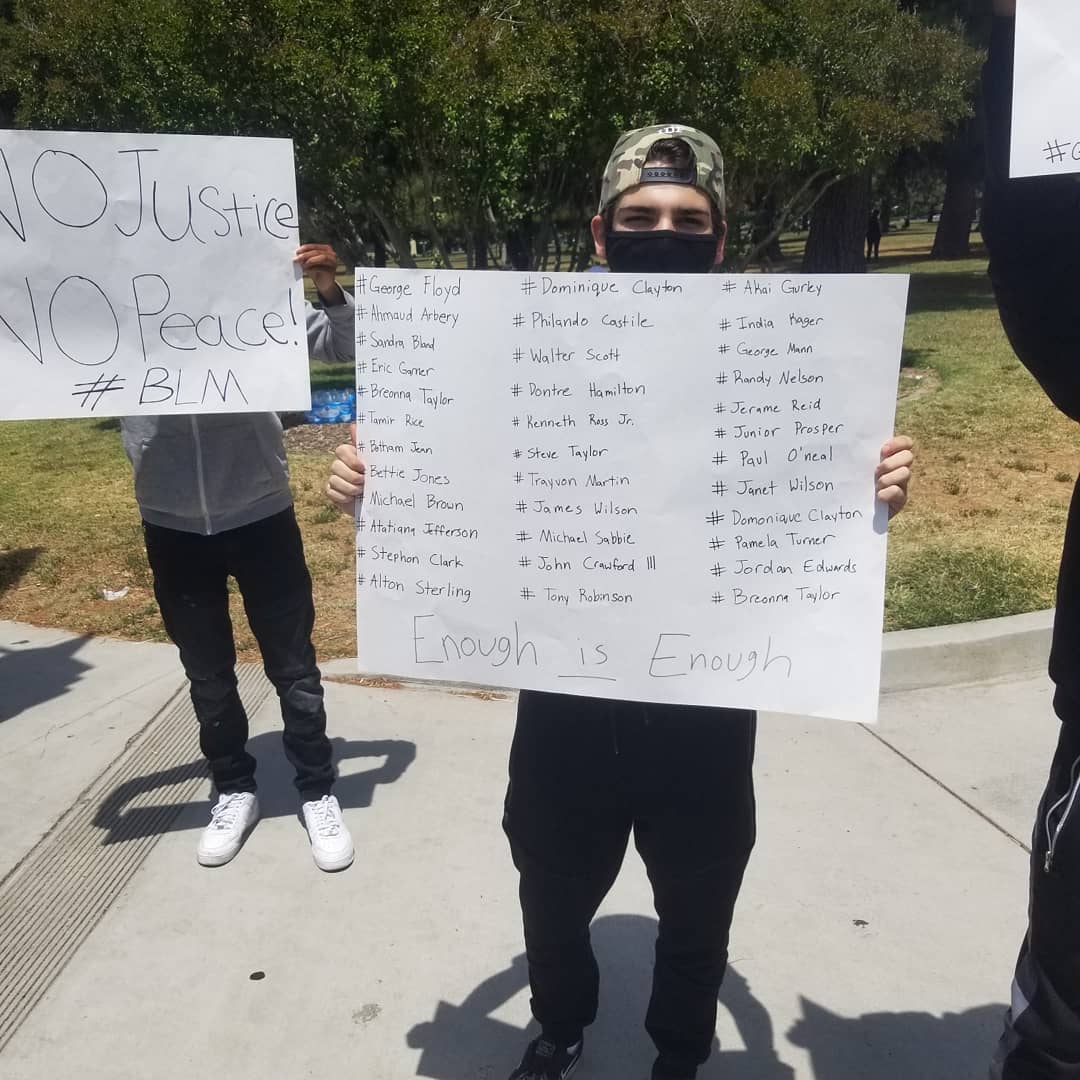 NO Justice
NO Peace!
# BLM
#George Floyd
#Ahmaud Arbery
#Sandra Bland
#Eric Garner
#Breonna Taylor
#Tamir Rice
#Botham Jean
#Bettie Jones
#Michael Brown
#Atatiana Jefferson
#Stephon Clark
#Alton Sterling
#Dominique Clayton
# Philando Castile
# Walter Scott
# Dontre Hamilton
# Kenneth Ross Jr.
# Steve Taylor
# Trayvon Martin
# James Wilson
# Michael Sabbie
# John Crawford III
# Tony Robinson
# Akai Gurley
# India Kager
# George Mann
# Randy Nelson
# Jerame Reid
# Junior Prosper
# Paul O'neal
# Janet Wilson
# Domonique Clayton
# Pamela Turner
# Jordan Edwards
# Breonna Taylor
Enough is Enough